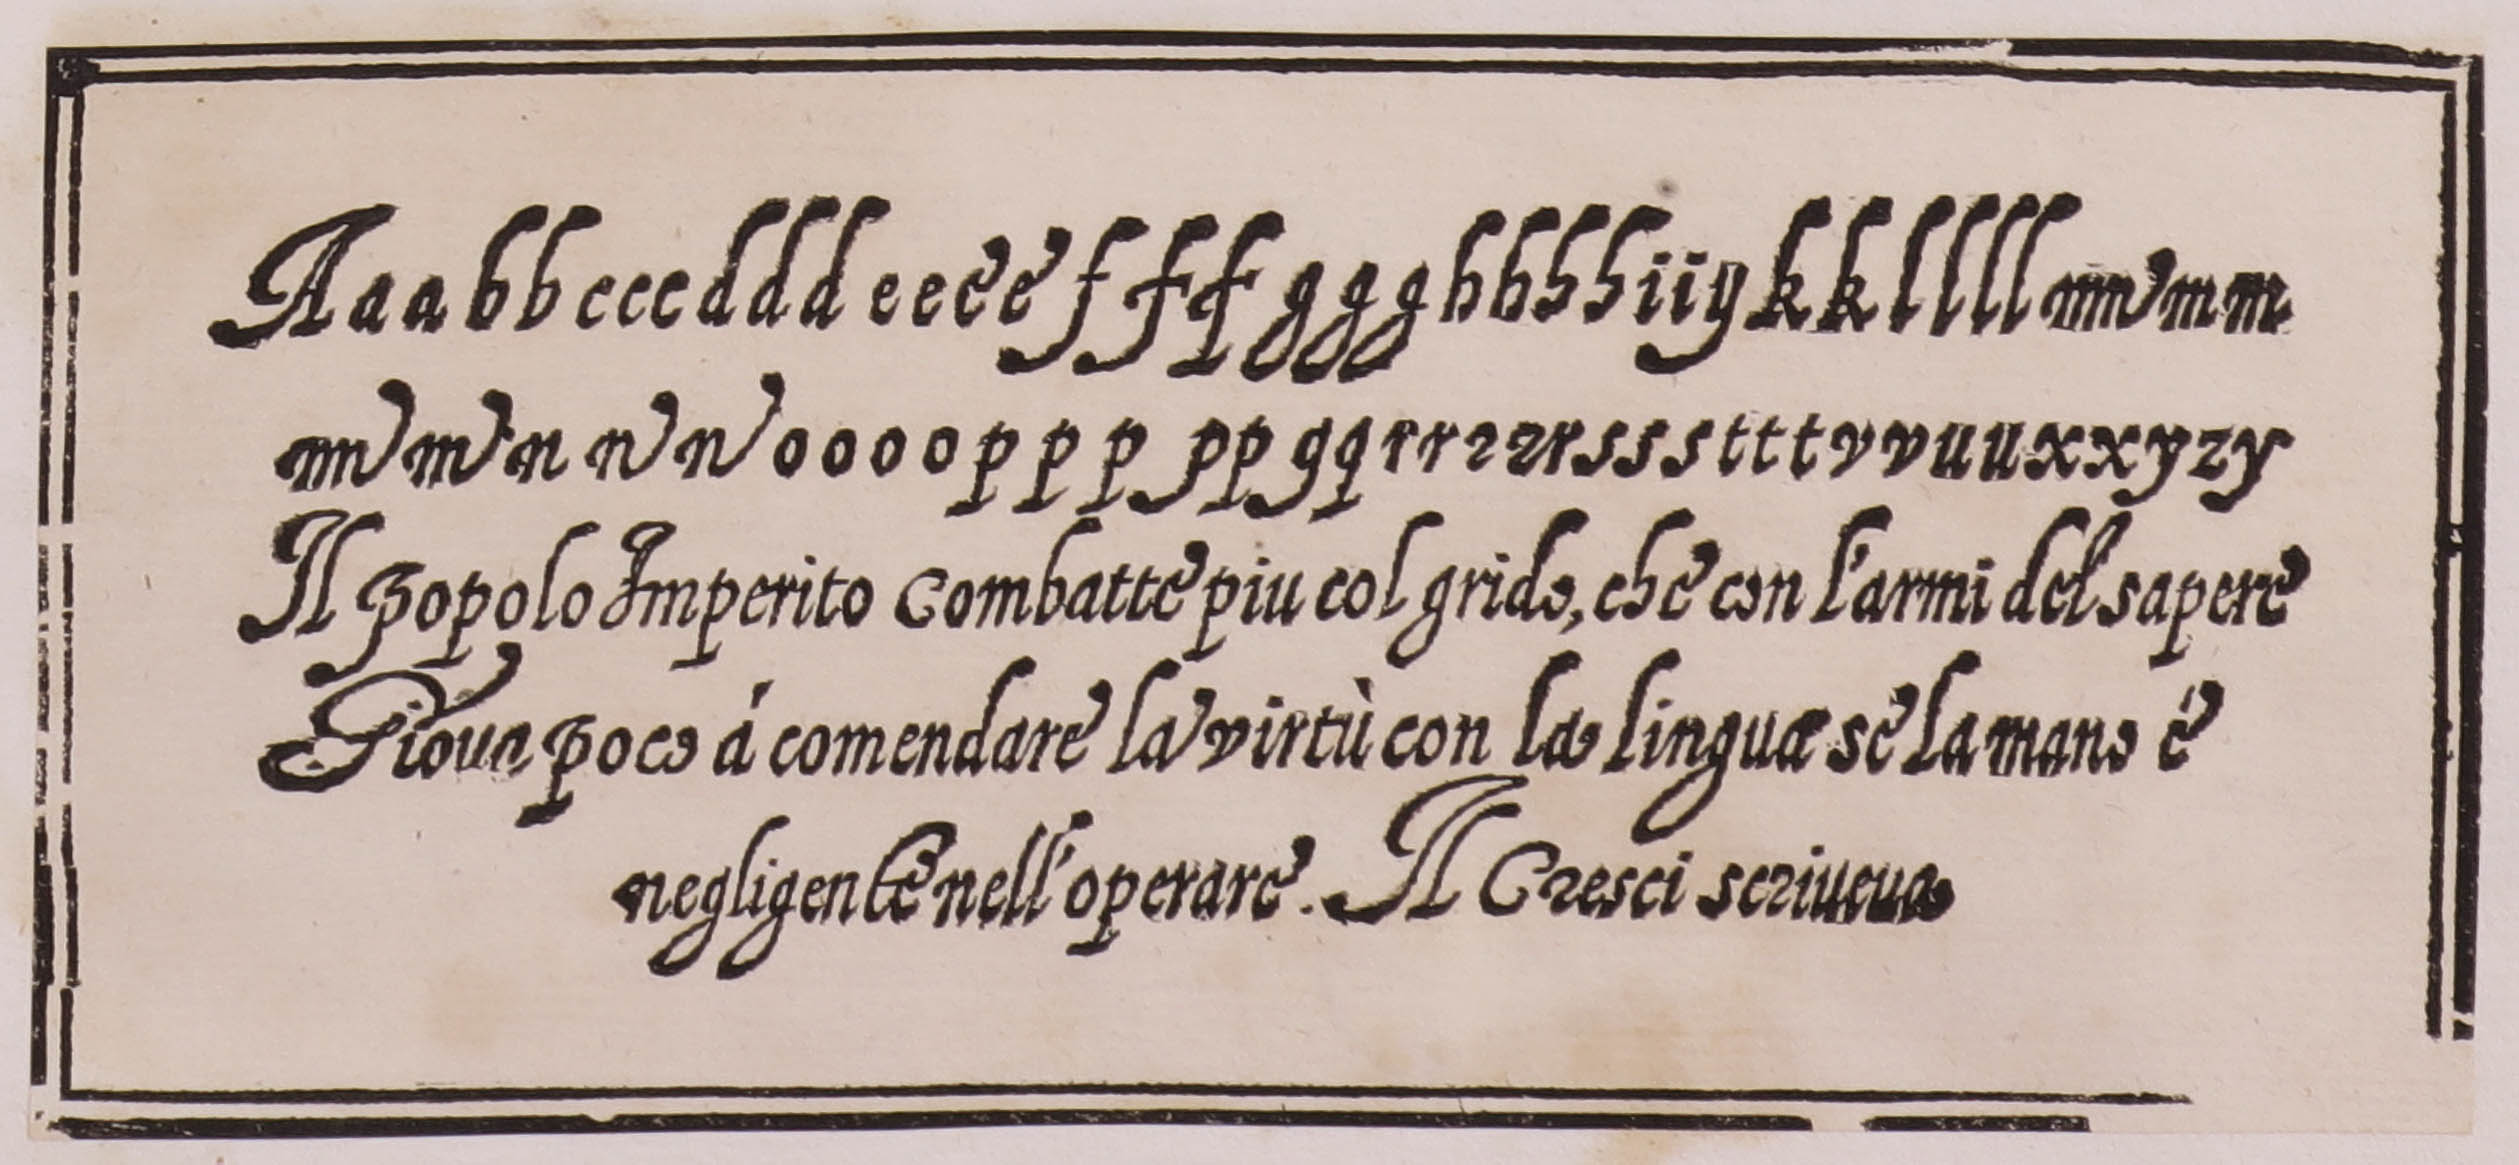 A a a b b c c c d d d e e e e f f f g g g h h h h i i y k k l l l l m m m m
m m n n n o o o o p p p p p q q r r r r r s s s t t t v v u u x x y z y
Il popolo Imperito combatte piu col grido, che con l'armi del sapere
Giova poco á comendare la virtù con la lingua se la mano é
negligente nell'operare. Il Cresci scriueua